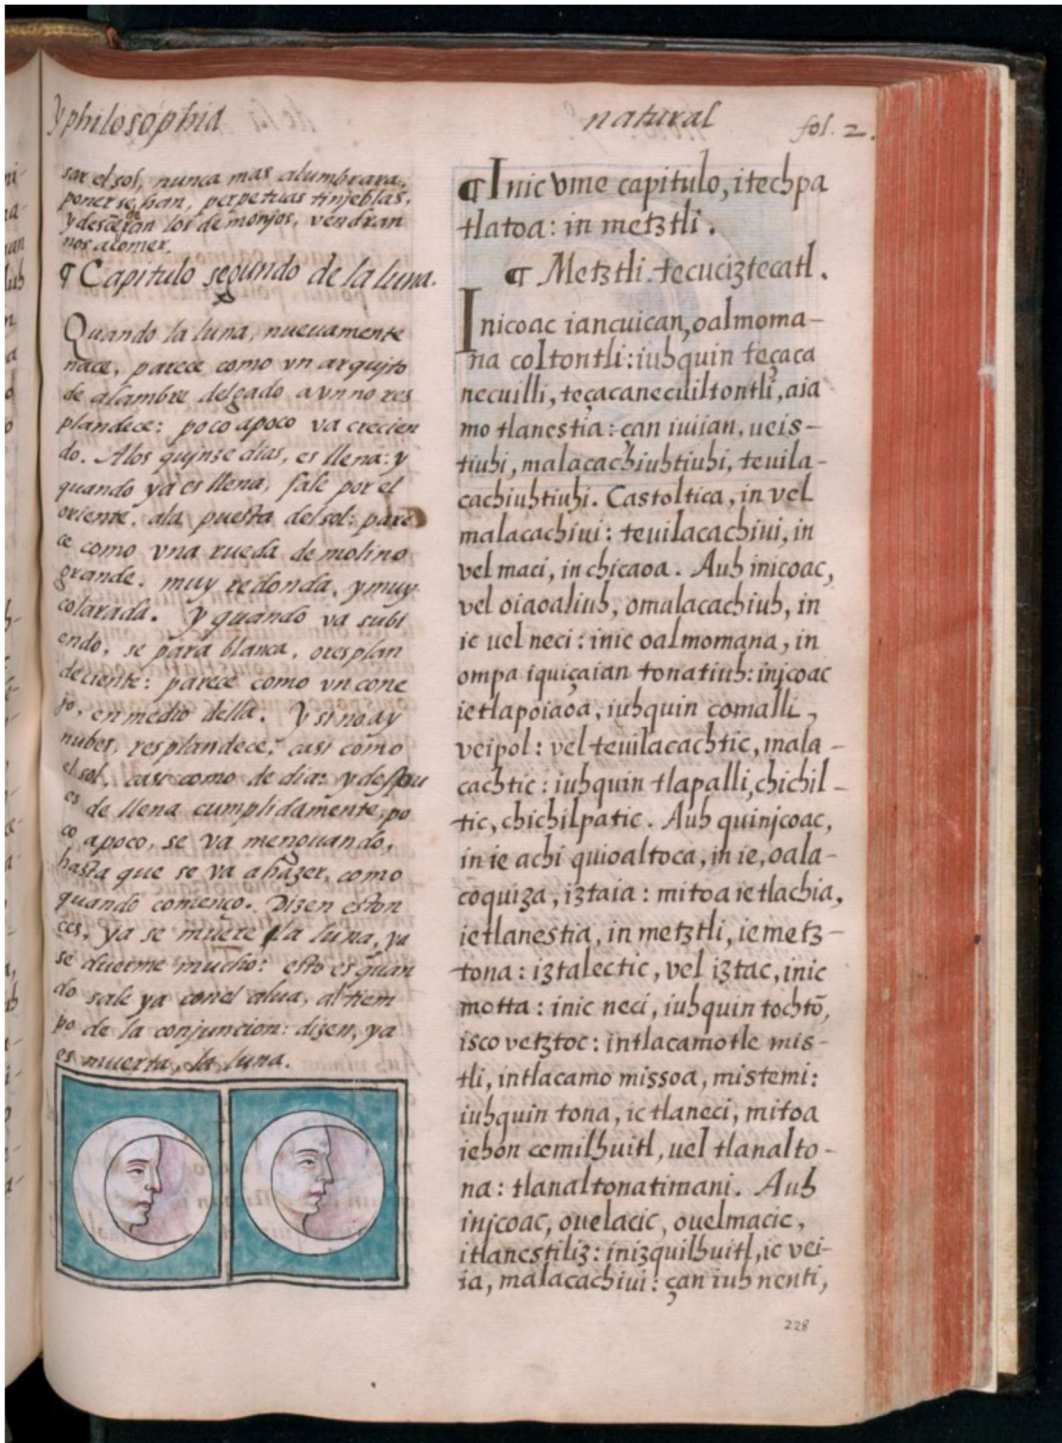 y philosophia
natural
fol. 2.
sar el sol, nunca mas alumbrara,
ponerse han, perpetuas tinjeblas,
y desceran los demonjos, vendran
nos acomer.
¶ Capitulo segundo de la luna.
Quando la luna, nueuamente
nace, parece como vn arqujto
de alambre delgado avn no res
plandece: poco apoco va crecien
do. Alos qujnze dias, es llena: y
quando ya es llena, sale por el
oriente. ala puesta del sol: pare
ce como vna rueda de molino
grande. muy redonda, y muy
colorada. y quando va subi
endo, se para blanca, o resplan
deciente: parece como vn cone
jo, en medio della. Y si no ay
nubes, resplandece, casi como
el sol, casi como de dia: y despu
es de llena cumplidamente, po
co apoco, se va menguando,
hasta que se va ahazer, como
quando començo. Dizen eston
ces, ya se muere la luna, ya
se duerme mucho: esto es quan
do sale ya conel alua, al tiem
po de la conjuncion: dizen, ya
es muerta, la luna.
¶ Inic vme capitulo, itechpa
tlatoa: in metztli.
¶ Metztli. tecuciztecatl.
Inicoac iancuican, oalmoma-
na coltontli: iuhquin teçaca
necuilli, teçacanecuiltontli, aia
mo tlanestia: çan iuiian, ueis-
tiuhi, malacachiuhtiuhi, teuila-
cachiuhtiuhi. Castoltica, in vel
malacachiui: teuilacachiui, in
vel maci, in chicaoa. Auh inicoac,
vel oiaoaliuh, omalacachiuh, in
ie uel neci: inic oalmomana, in
ompa iquiçaian tonatiuh: injcoac
ietlapoiaoa, iuhquin comalli,
veipol: vel teuilacachtic, mala-
cachtic: iuhquin tlapalli, chichil-
tic, chichilpatic. Auh quinjcoac,
in ie achi quioaltoca, in ie, oala-
coquiza, iztaia: mitoa ie tlachia,
ietlanestia, in metztli, ie metz-
tona: iztalectic, vel iztac, inic
motta: inic neci, iuhquin tochtō,
isco vetztoc: intlacamotle mis-
tli, intlacamo missoa, mistemi:
iuhquin tona, ic tlaneci, mitoa
iehon cemilhuitl, uel tlanalto-
na: tlanaltonatimani. Auh
injcoac, ouelacic, ouelmacic,
itlanestiliz: inizquilhuitl, ic vei-
ia, malacachiui: çan iuh nenti,
228